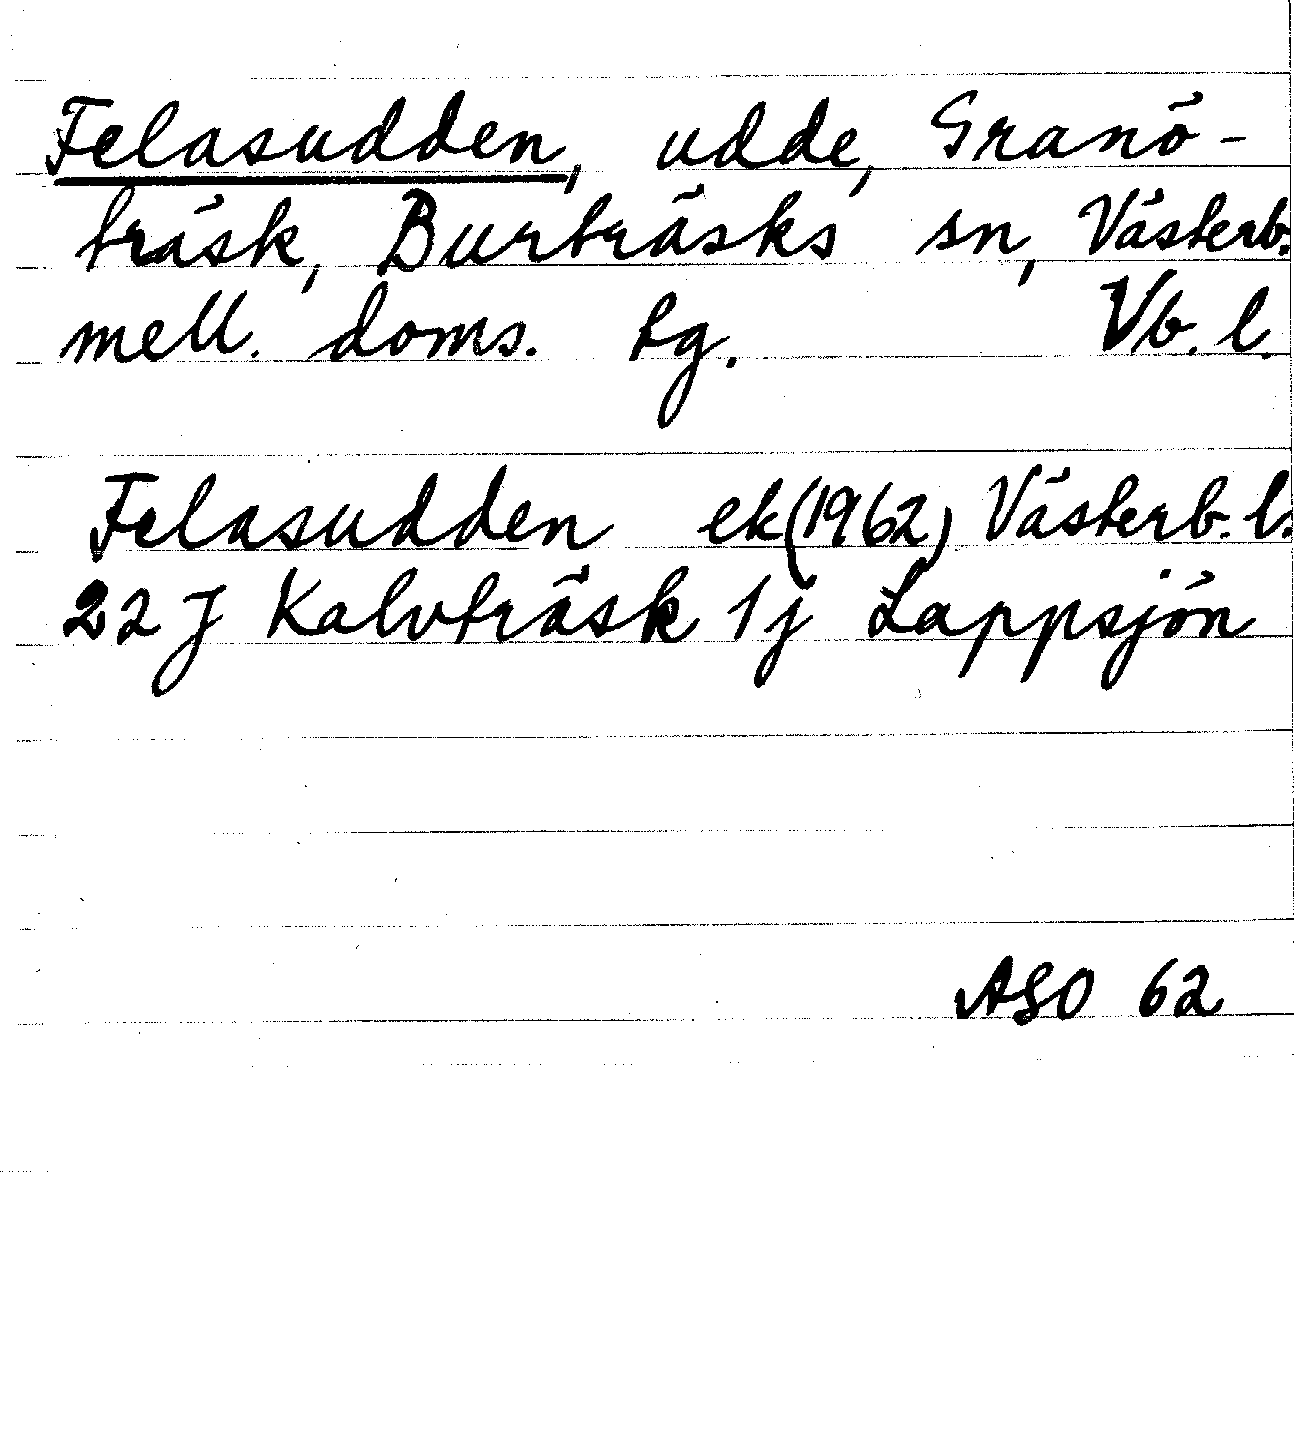 Felasudden, udde, Granö-
träsk, Burträsks sn, Västerb.
mell. doms. tg. Vb. l.
Felasudden ek (1962) Västerb. l.
22 J Kalvträsk 1j Lappsjön
ASO 62